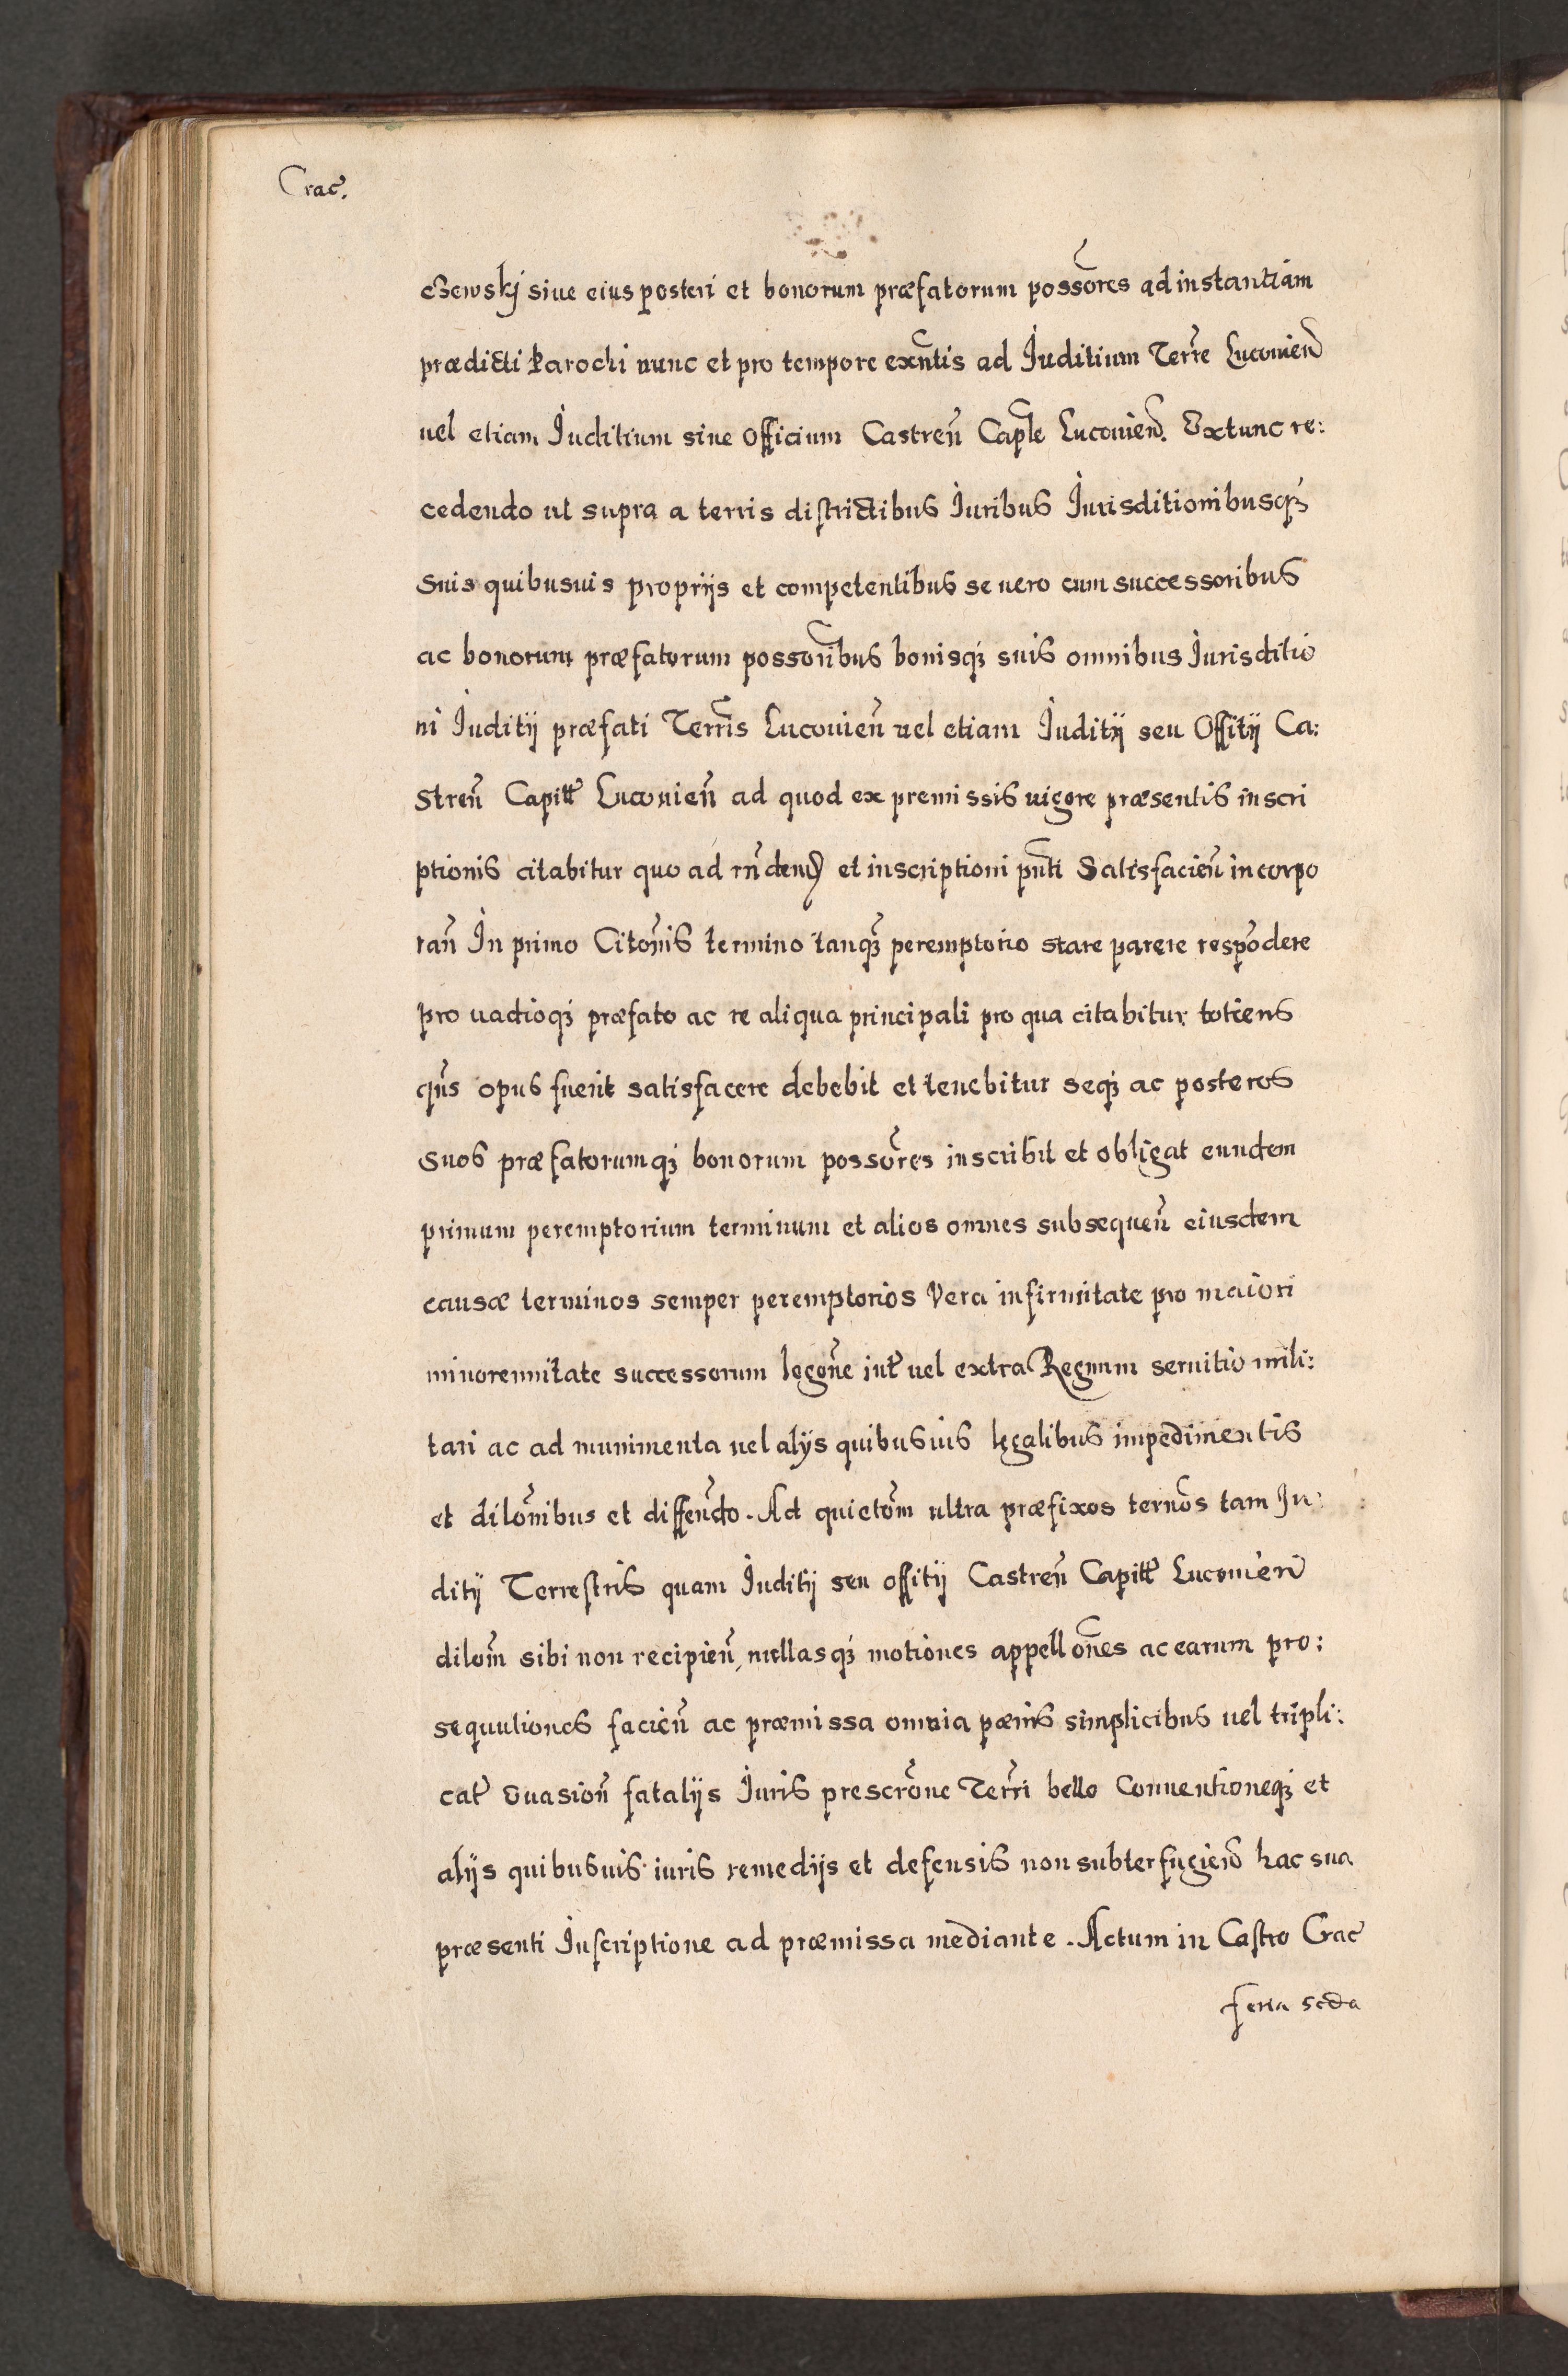 Crac̃.
czewskj siue eius posteri et bonorum præfatorum possores̃ ad instantiam
prædicti Parochi nunc et pro tempore exñtis ad Juditium Terr̃e Lucouieñ
uel etiam Juditium siue Officium Castreñ Caple̴ Lucouieñ. Extunc re:
cedendo ut supra a terris districtibus Juribus Jurisditionibusqꝫ
suis quibusuis proprijs et competentibus se uero cum successoribus
ac bonorum præfatorum possor̃ibus bonisqꝫ suis omnibus Jurisditio
ni Juditij præfati Terr̃is Lucouieñ uel etiam Juditij seu Offitij Ca:
streñ Capittˀ Lucouieñ ad quod ex premissis uigore præsentis inscri
ptionis citabitur quo ad rñdend et inscriptioni pñti Satisfacieñ incorpo
rañ In primo Citoñis termino tanq̃ꝫ peremptorio stare parere respõdere
pro uadioqꝫ præfato ac re aliqua principali pro qua citabitur totiens
qñs opus fuerit satisfacere debebit et tenebitur seqꝫ ac posteros
suos præfatorumqꝫ bonorum possor̃es inscribit et obligat eundem
primum peremptorium terminum et alios omnes subsequeñ eiusdem
causæ terminos semper peremptorios Vera infirmitate pro maiori
minorennitate successorum legoñe intˀ uel extra Regnum seruitio mili:
tari ac ad munimenta uel alijs quibusuis legalibus impedimentis
et diloñibus et diffeñdo. Ad quietom̃ ultra præfixos termõs tam Ju:
ditij Terrestris quam Juditij seu offitij Castreñ Capittˀ Lucouieñ
dilom̃ sibi non recipieñ, nullasqꝫ motiones appelloñes ac earum pro:
sequutiones facieñ ac præmissa omnia pænis simplicibus uel tripli:
catˀ Euasioñ fatalijs Juris prescroñe Terr̃i bello Conuentioneqꝫ et
alijs quibusuis iuris remedijs et defensis non subterfugieñ hac sua
præsenti Inscriptione ad præmissa mediante. Actum in Castro Crac̃
feria scda